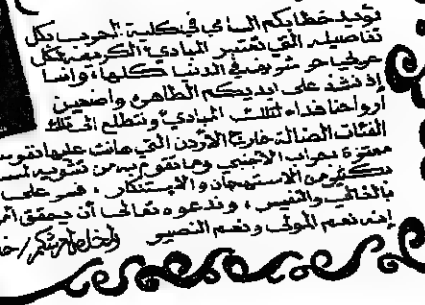 نؤيد خطابكم السامي في كلية الحرب بكل
تفاصيله التي تعتبر المبادئ الكريمة لكل
عربي حر شريف في الدنيا كلها، وإننا
إذ نشد على ايديكم الطاهرة واضعين
أرواحنا فداء لتلك المبادئ ونتطلع الى تلك
الفئات الضالة خارج الأردن التي هانت عليها نفوسـ
معتزة بحراب الأجنبي وما تقوم به من تشويه لسـ
بكثير من الاستهجان والاستنكار، فسر على
بالغالي والنفيس، وندعوه تعالى أن يحقق
إنه نعم المولى ونعم النصير